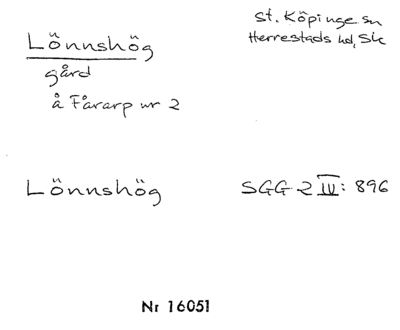 Lönnshög
gård
å Fårarp nr 2
St. Köpinge sn
Herrestads hd, Sk
Lönnshög
SGG 2 IV: 896
Nr 16051